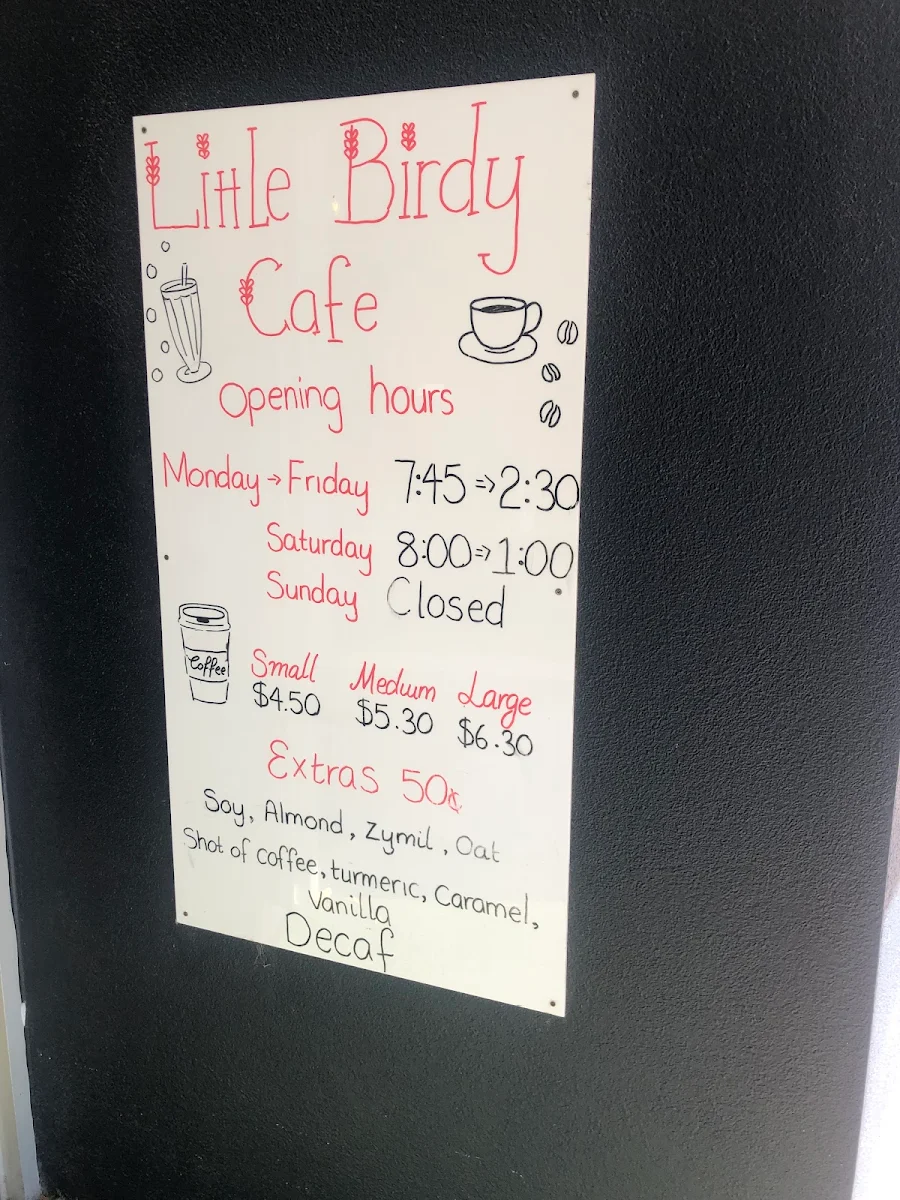 Little Birdy
Cafe
Opening hours
Monday → Friday 7:45 => 2:30
Saturday 8:00 => 1:00
Sunday Closed
Coffee
Small Medium Large
$4.50 $5.30 $6.30
Extras 50¢
Soy, Almond, Zymil, Oat
Shot of coffee, turmeric, Caramel,
Vanilla
Decaf